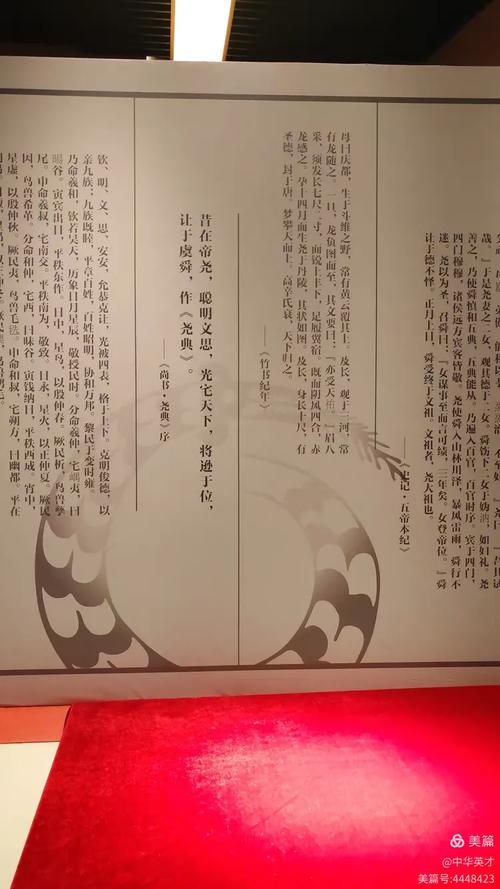 哉。』于是尧妻之二女,观其德于二女。舜饬下二女于妫汭,如妇礼。尧
善之,乃使舜慎和五典,五典能从。乃遍入百官,百官时序。宾于四门,
四门穆穆,诸侯远方宾客皆敬。尧使舜入山林川泽,暴风雷雨,舜行不
迷。尧以为圣,召舜曰:『女谋事至而言可绩,三年矣。女登帝位。』舜
让于德不怿。正月上日,舜受终于文祖。文祖者,尧大祖也。
——《史记·五帝本纪》
母曰庆都,生于斗维之野,常有黄云覆其上。及长,观于三河,常
有龙随之。一旦,龙负图而至,其文要曰:『亦受天佑。』眉八
采,须发长七尺二寸,面锐上丰下,足履翼宿。既而阴风四合,赤
龙感之。孕十四月而生尧于丹陵,其状如图。及长,身长十尺,有
圣德,封于唐。梦攀天而上。高辛氏衰,天下归之。
——《竹书纪年》
昔在帝尧,聪明文思,光宅天下,将逊于位,
让于虞舜,作《尧典》。
——《尚书·尧典》序
钦、明、文、思、安安,允恭克让,光被四表,格于上下。克明俊德,以
亲九族;九族既睦,平章百姓,百姓昭明,协和万邦。黎民于变时雍。
乃命羲和,钦若昊天,历象日月星辰,敬授民时。分命羲仲,宅嵎夷,曰
旸谷。寅宾出日,平秩东作。日中,星鸟,以殷仲春。厥民析,鸟兽孳
尾。申命羲叔,宅南交。平秩南为,敬致。日永,星火,以正仲夏。厥民
因,鸟兽希革。分命和仲,宅西,曰昧谷。寅饯纳日,平秩西成。宵中,
星虚,以殷仲秋。厥民夷,鸟兽毛毨。申命和叔,宅朔方,曰幽都。平在
美篇
@中华英才
美篇号:4448423